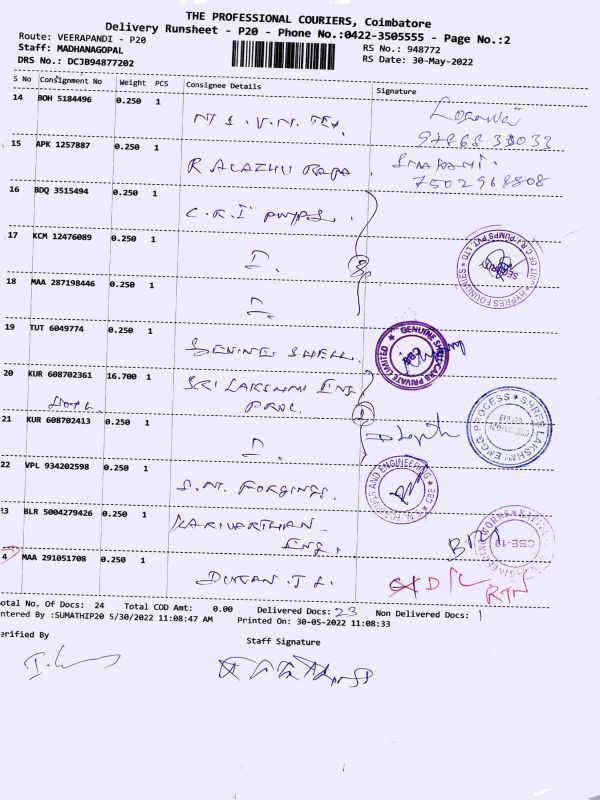 THE PROFESSIONAL COURIERS, Coimbatore
Delivery Runsheet - P20 - Phone No.:0422-3505555 - Page No.:2
Route: VEERAPANDI - P20
RS No.: 948772
Staff: MADHANAGOPAL
RS Date: 30-May-2022
DRS No.: DCJB94877202
S No Consignment No Weight PCS Consignee Details Signature
14 BOH 5184496 0.250 1 M S.V.N. TEX.
9786833033
15 APK 1257887 0.250 1 R ALAZHU RAJA.
7502968808
16 BDQ 3515494 0.250 1 C.R.I PUMPS.
17 KCM 12476089 0.250 1
18 MAA 287198446 0.250 1
SECURITY
19 TUT 6049774 0.250 1 SHELL.
GENUINE SHELL CARB PRIVATE LIMITED
20 KUR 608702361 16.700 1 SRI LAKSHMI ENG
PROC.
21 KUR 608702413 0.250 1
SHREE LAKSHMI ENGG PROCESS
22 VPL 934202598 0.250 1 S.M. FORGINGS.
AND ENGINEERING
23 BLR 5004279426 0.250 1 KARIVARTHAN
ENG.
CBE-19
4 MAA 291051708 0.250 1 DURGAN. T L. D/L
RTN
otal No. Of Docs: 24 Total COD Amt: 0.00 Delivered Docs: 23 Non Delivered Docs: 1
ntered By :SUMATHIP20 5/30/2022 11:08:47 AM Printed On: 30-05-2022 11:08:33
erified By
Staff Signature